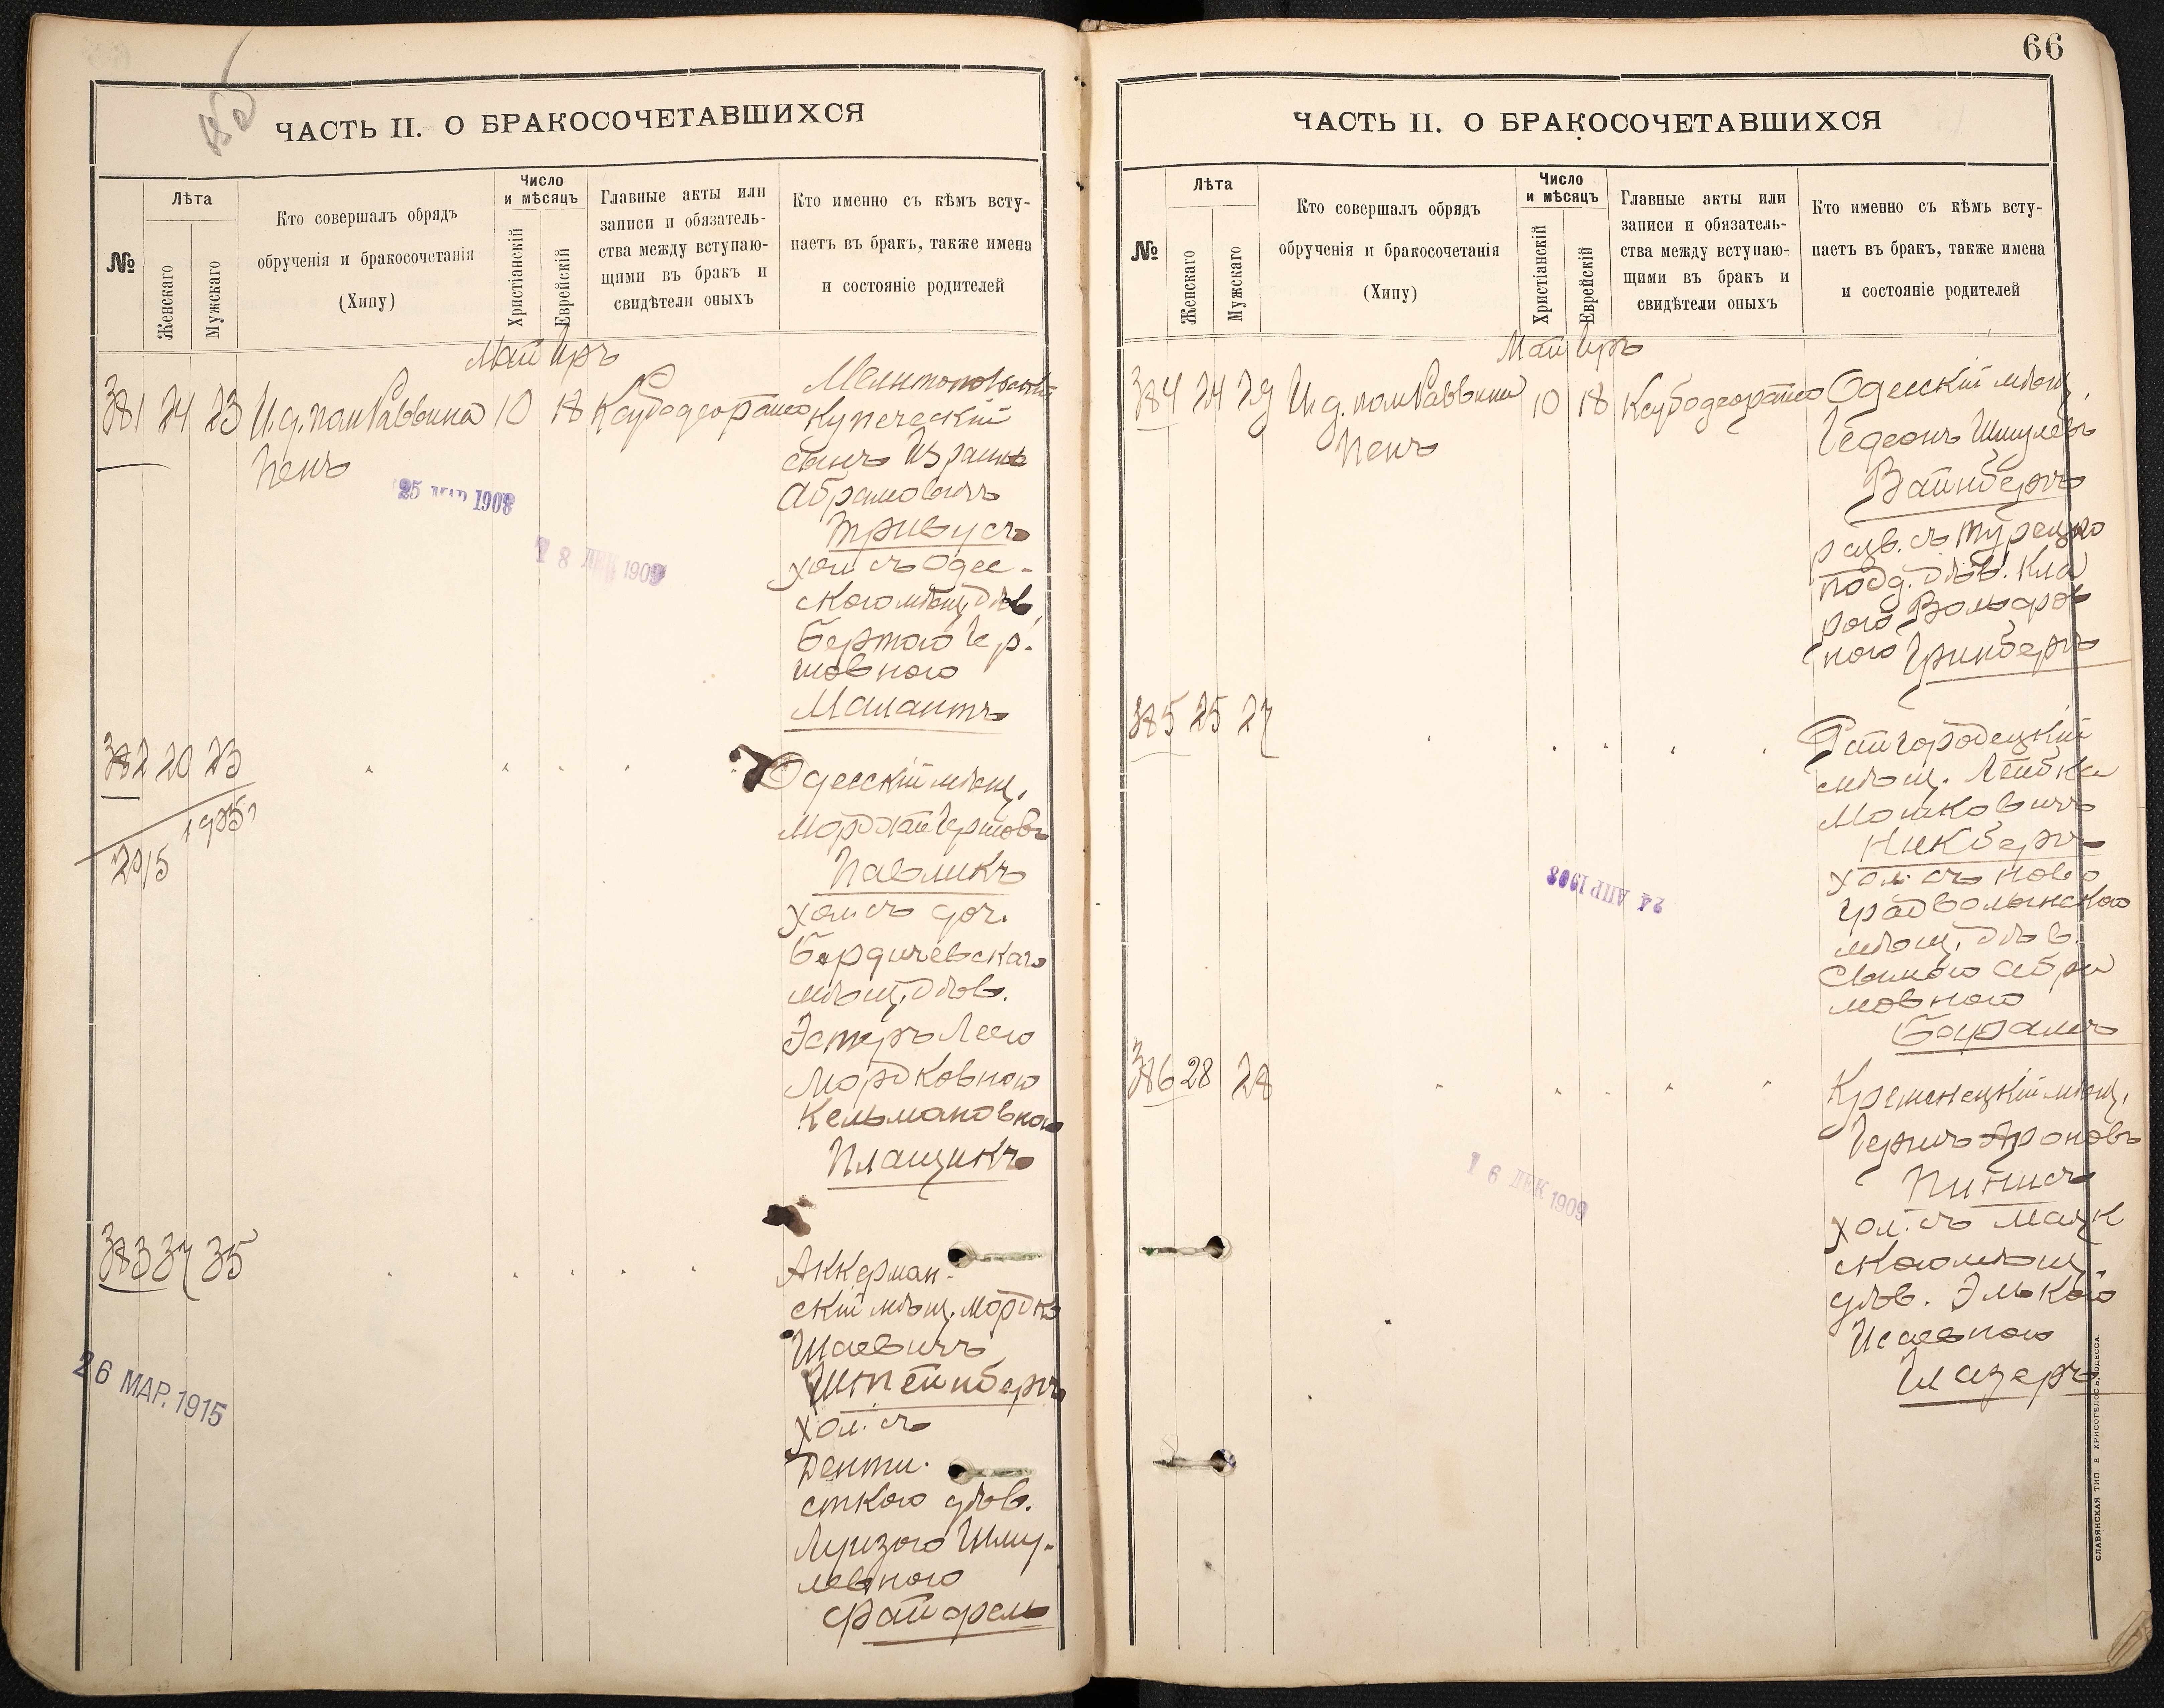 ЧАСТЬ II. О БРАКОСОЧЕТАВШИХСЯ
№
Лѣта
Женскаго
Мужскаго
Кто совершалъ обрядъ
обрученія и бракосочетанія
(Хипу)
Число
и мѣсяцъ
Христіанскій
Еврейскій
Главные акты или
записи и обязатель-
ства между вступаю-
щими въ бракъ и
свидѣтели оныхъ
Кто именно съ кѣмъ всту-
паетъ въ бракъ, также имена
и состояніе родителей
Май Иръ
381 24 23 И.д. пом Раввина 10 18
Пенъ
Мелитопольскій
Купеческій
сынъ Израиль
Абрамовичъ
Тривусъ
хол. съ Одес-
скою мѣщ. дѣв.
Бертою Гер-
шовною
Малантъ
25 МАР 1908
18 ДЕК 1909
382 20 23
1915
Одесскій мѣщ.
Мордхай Гершовъ
Павликъ
хол. съ доч.
Бердичевскаго
мѣщ. дѣв.
Эстеръ Леею
Мордковною
Кельмановною
Плащикъ
383 37 35
26 МАР. 1915
Аккерман-
скій мѣщ. Мордко
Шаевичъ
Штейнбергъ
хол. съ
Денти-
сткою дѣв.
Луизою Шму-
левною
Файфель
66
ЧАСТЬ II. О БРАКОСОЧЕТАВШИХСЯ
№
Лѣта
Женскаго
Мужскаго
Кто совершалъ обрядъ
обрученія и бракосочетанія
(Хипу)
Число
и мѣсяцъ
Христіанскій
Еврейскій
Главные акты или
записи и обязатель-
ства между вступаю-
щими въ бракъ и
свидѣтели оныхъ
Кто именно съ кѣмъ всту-
паетъ въ бракъ, также имена
и состояніе родителей
Май Иръ
384 24 29 И.д. пом Раввина 10 18
Пенъ
Одесскій мѣщ.
Гедеонъ Шмулевъ
Вайнбергъ
разв. съ Турецко
подд. дѣв. Кла
рою Вольфов
ною Гринбергъ
385 25 27
Райгородецкій
мѣщ. Лейбка
Мошковичъ
хол. съ Ново
градволынскою
мѣщ. дѣв.
Абра
мовною
24 АПР 1908
386 28 28
Кременецкій мѣщ.
Гершъ Ароновъ
Питисъ
хол. съ
скою мѣщ.
дѣв. Элькою
Исаевною
Глазеръ
16 ДЕК 1909
СЛАВЯНСКАЯ ТИП. Е. ХРИСОГЕЛОСЪ, ОДЕССА